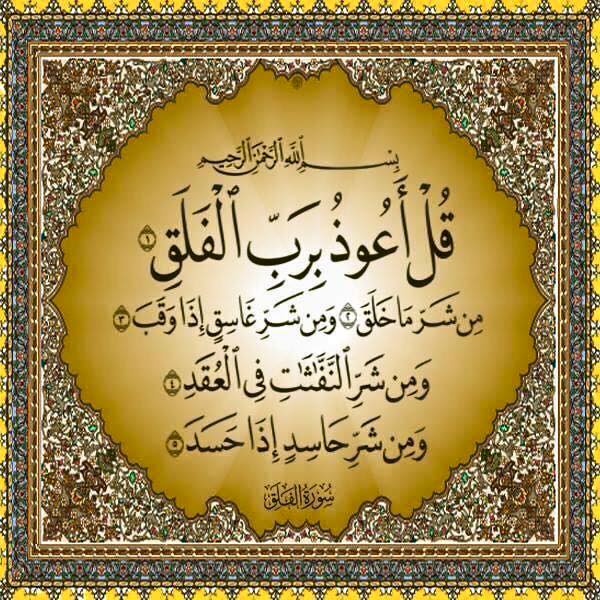 بِسْمِ ٱللَّهِ ٱلرَّحْمَٰنِ ٱلرَّحِيمِ
قُلْ أَعُوذُ بِرَبِّ ٱلْفَلَقِ ١
مِن شَرِّ مَا خَلَقَ ٢ وَمِن شَرِّ غَاسِقٍ إِذَا وَقَبَ ٣
وَمِن شَرِّ ٱلنَّفَّٰثَٰتِ فِى ٱلْعُقَدِ ٤
وَمِن شَرِّ حَاسِدٍ إِذَا حَسَدَ ٥
سُورَةُ الفَلَق